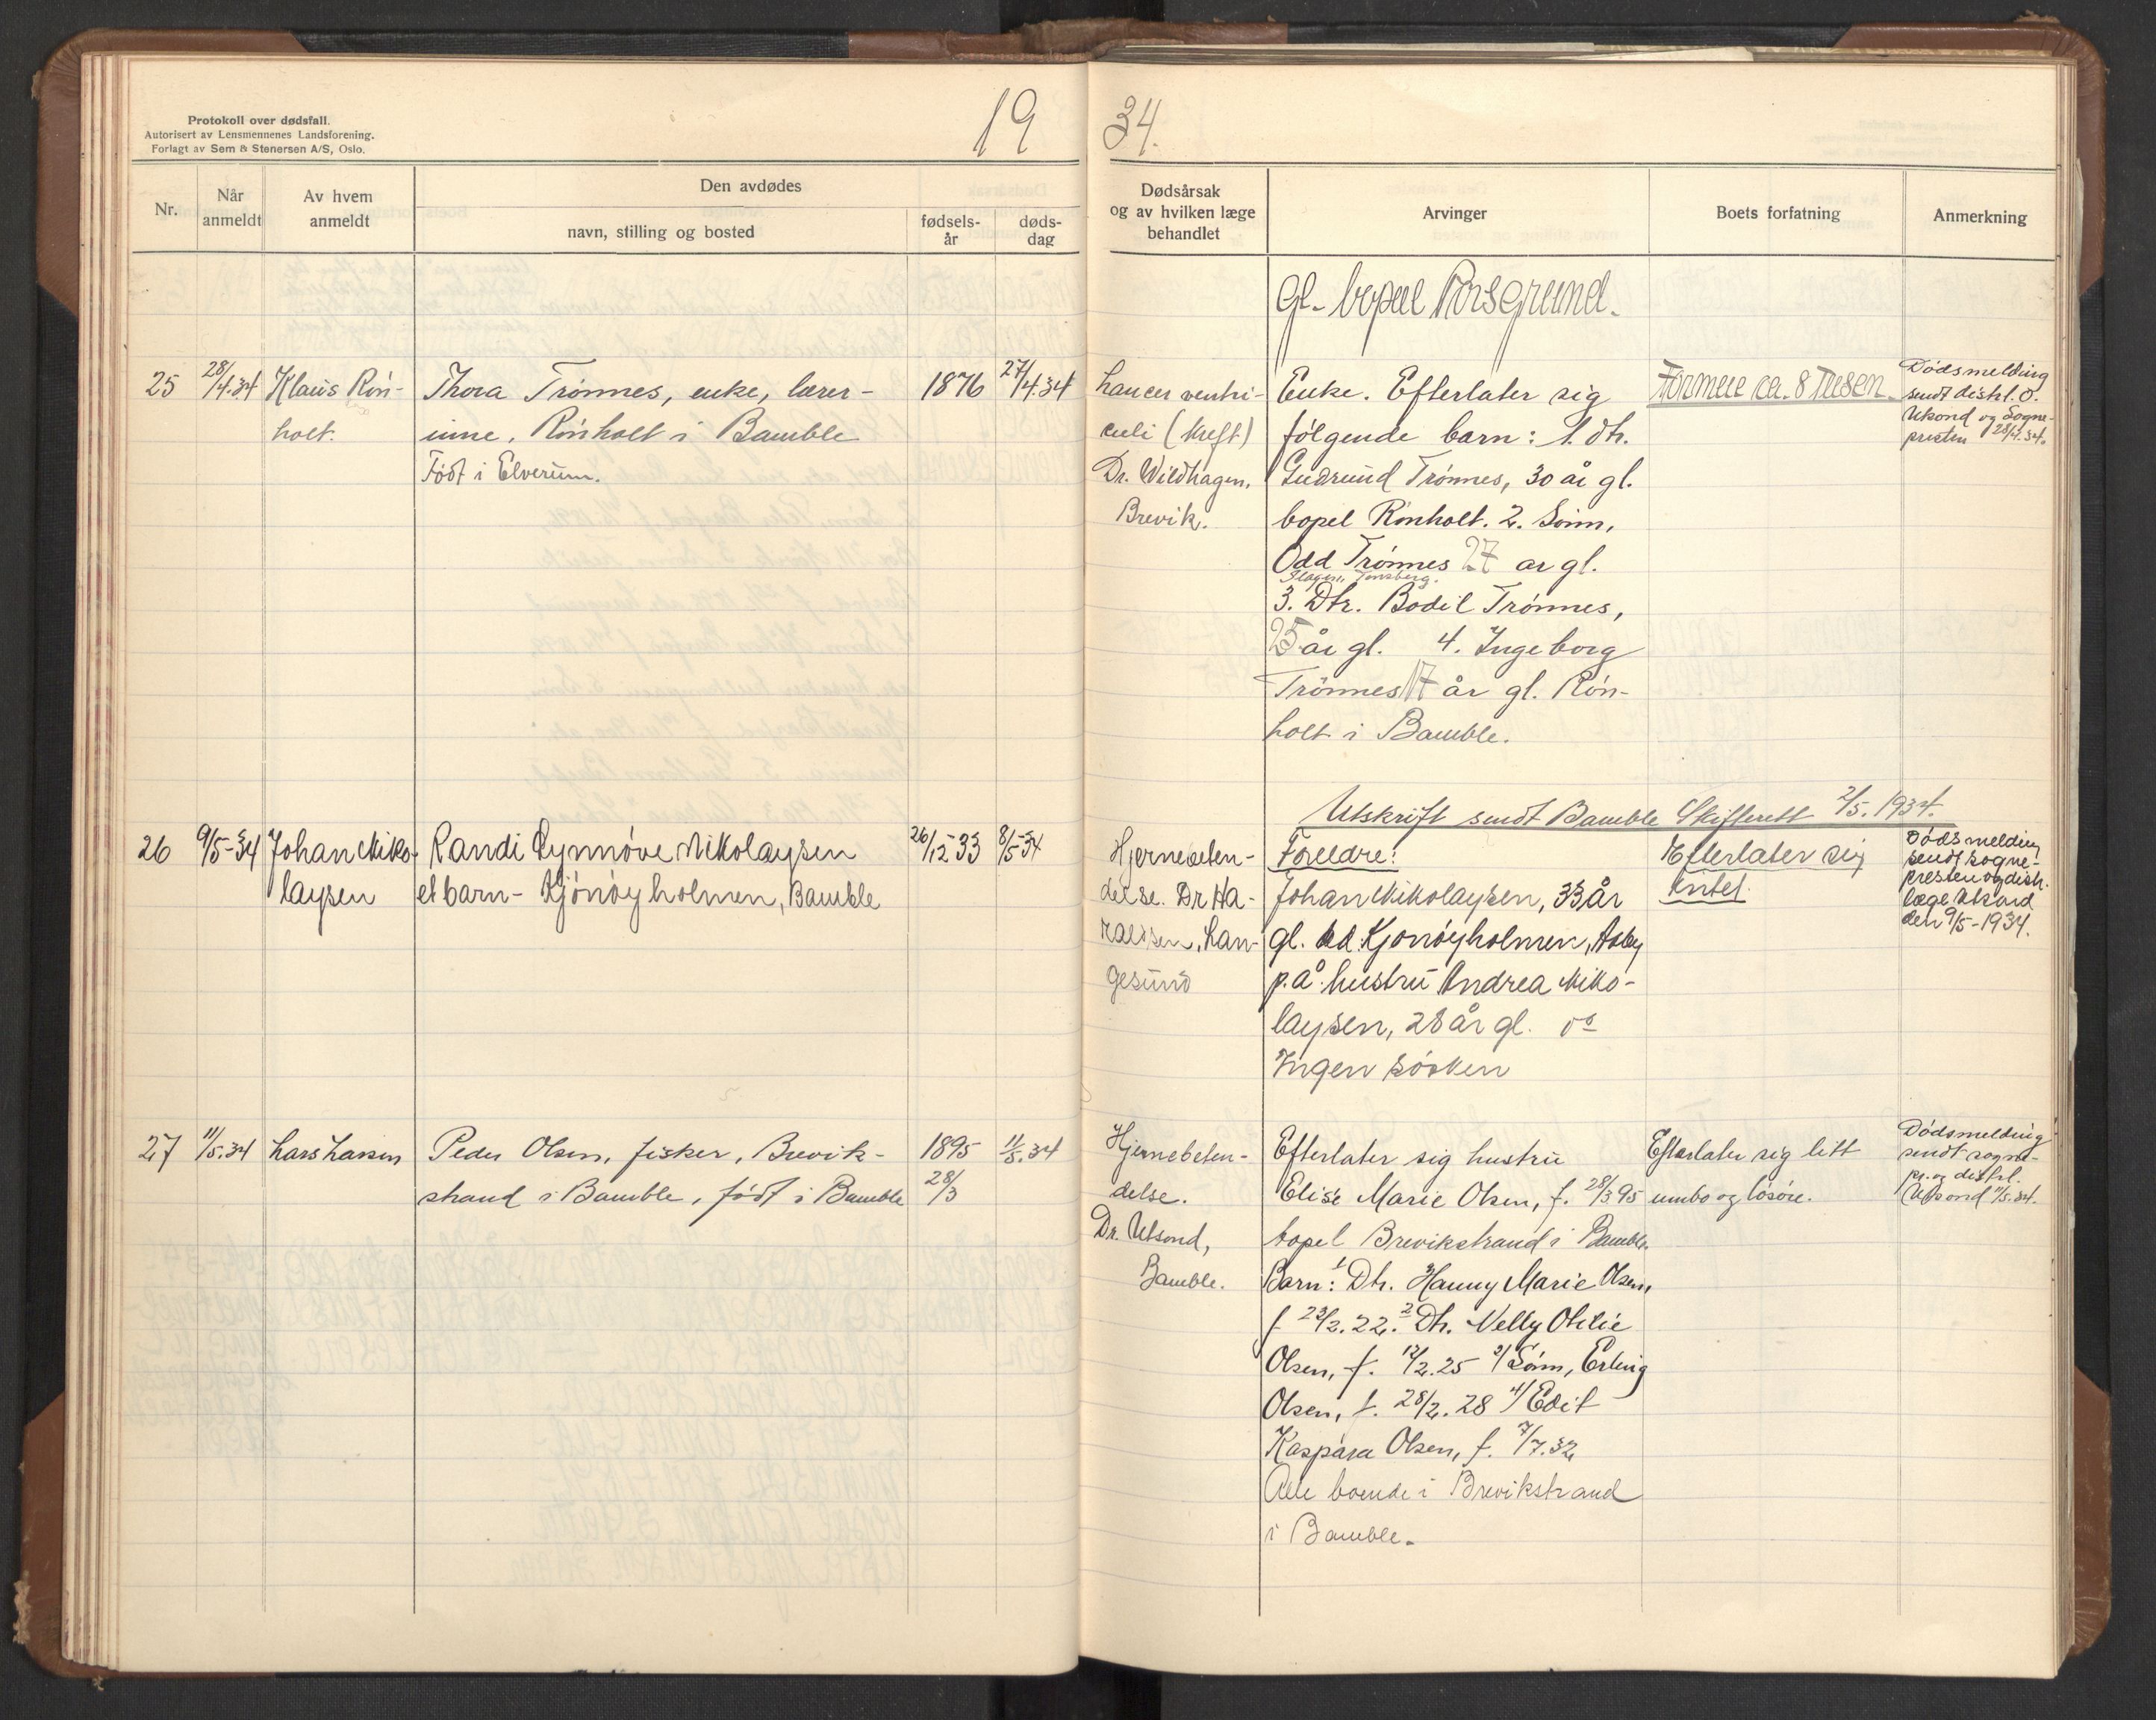 Protokoll over dødsfall.
Autorisert av Lensmennenes Landsforening.
Forlagt av Sem & Stenersen A/S, Oslo.
19
Nr.
Når
anmeldt
Av hvem
anmeldt
Den avdødes
navn, stilling og bosted
fødsels-
år
døds-
dag
25
28/4.34
Klaus Rön-
holt.
Thora Trönnes, enke, lærer-
inne, Rönholt i Bamble
Födt i Elverum.
1876
27/4.34
26
9/5-34
Johan Niko-
laysen
Randi Synnöve Nikolaysen
et barn - Kjönöyholmen, Bamble
26/12 33
8/5-34
27
11/5.34
Lars Larsen
Peder Olsen, fisker, Brevik-
strand i Bamble, födt i Bamble
1895
28/3
11/5.34
34.
Dødsårsak
og av hvilken læge
behandlet
Arvinger
Boets forfatning
Anmerkning
gl. bopæl Porsgrund.
Cancer ventri-
culi (kreft)
Dr. Wildhagen,
Brevik.
Enke. Efterlater sig
følgende barn: 1. dtr.
Gudrund Trönnes, 30 år gl.
bopel Rönholt. 2. Sönn,
Odd Trönnes 27 år gl.
Slagen, Tønsberg.
3. Dtr. Bodil Trönnes,
25 år gl. 4. Ingeborg
Trönnes 17 år gl. Rön-
holt i Bamble.
Formue ca. 8 Tusen.
Dödsmelding
sendt distrl. O.
Utsond og Sogne-
presten 28/4.34.
Utskrift sendt Bamble Skifterett 2/5.1934.
Hjernebeten-
delse. Dr Ha-
raldsen, Lan-
gesund
Foreldre:
Johan Nikolaysen, 33 år
gl. Kjönöyholmen,
p.å. hustru Andrea Niko-
laysen, 28 år gl. do
Ingen sösken
Efterlater sig
intet.
Dödsmelding
sendt sogne-
presten og distr.
læge Utsond
den 9/5-1934.
Hjernebeten-
delse.
Dr. Utsond,
Bamble.
Efterlater sig hustru
Elise Marie Olsen, f. 28/3 95
bopel Brevikstrand i Bamble.
Barn: 1 Dtr. Hanny Marie Olsen,
f 23/2.22. 2 Dtr. Nelly Otilie
Olsen, f. 12/2.25 3/ Sönn, Erling
Olsen, f. 28/2.28 4/ Edit
Kaspara Olsen, f. 7/7.32
Alle boende i Brevikstrand
i Bamble.
Efterlater sig litt
innbo og lösöre.
Dödsmelding
sendt sogne-
pr. og distrl.
Utsond 11/5.34.